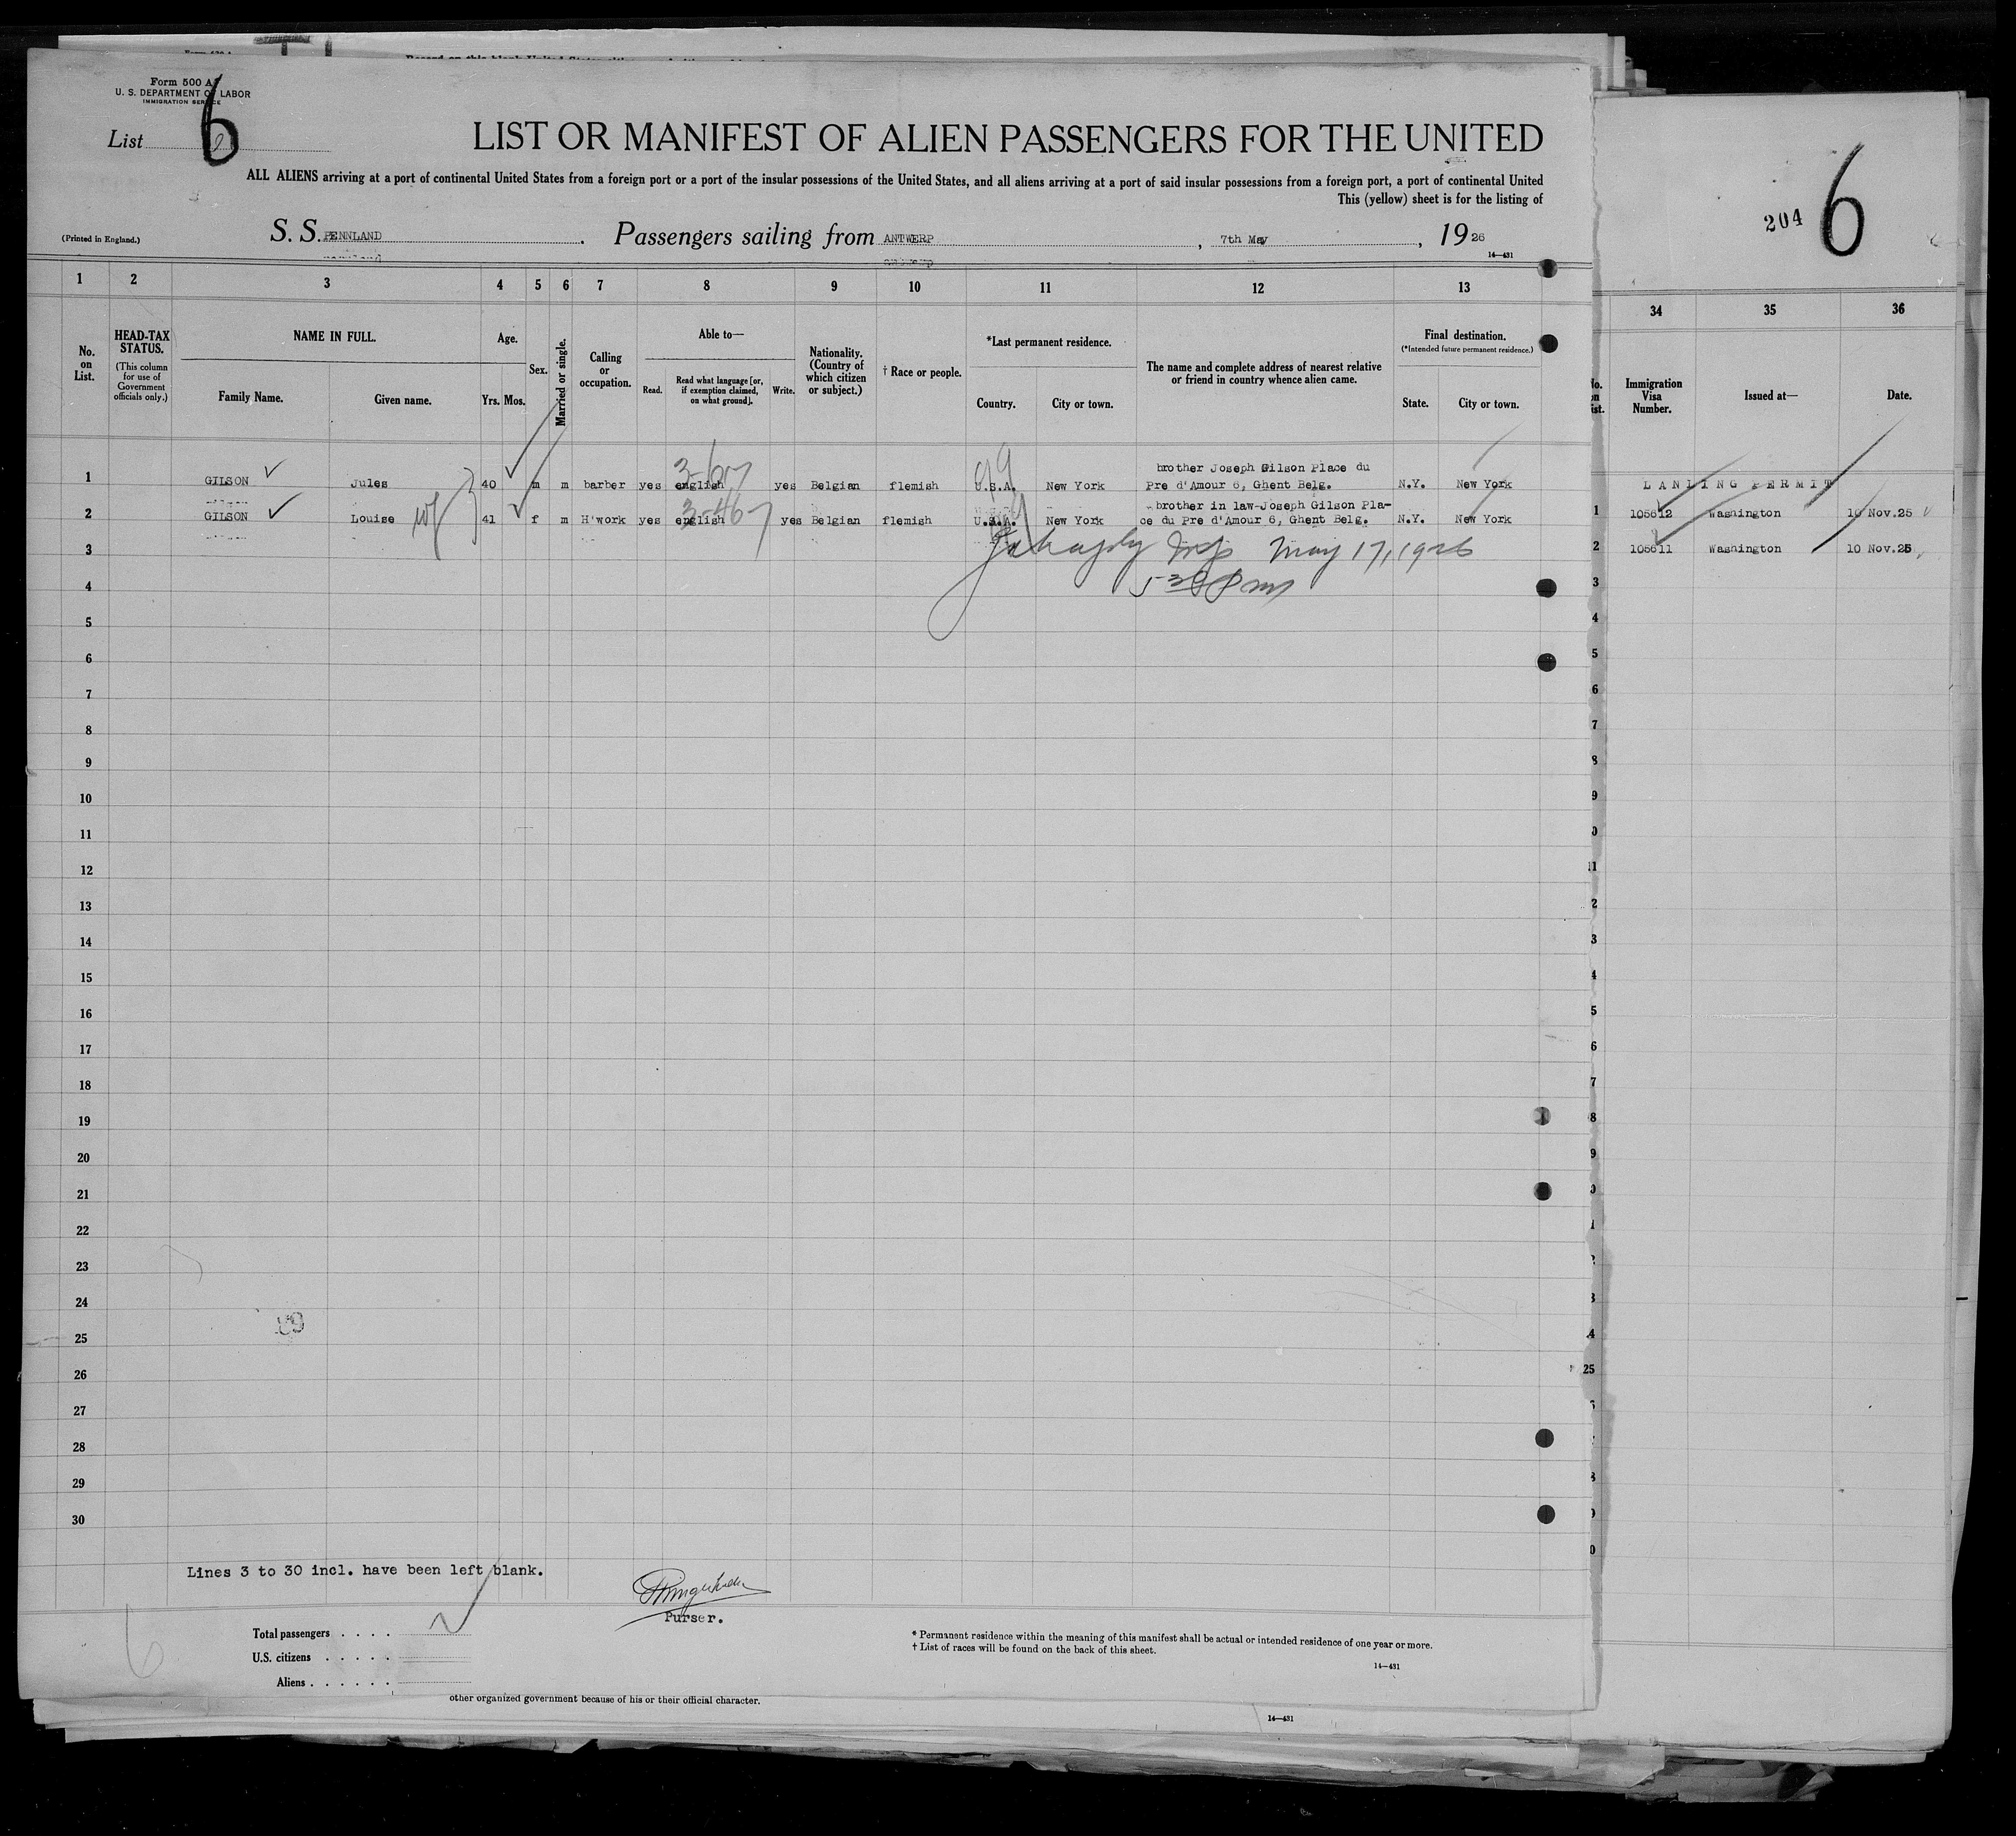 Form 500 A
U. S. DEPARTMENT OF LABOR
IMMIGRATION SERVICE
List 6
LIST OR MANIFEST OF ALIEN PASSENGERS FOR THE UNITED
ALL ALIENS arriving at a port of continental United States from a foreign port or a port of the insular possessions of the United States, and all aliens arriving at a port of said insular possessions from a foreign port, a port of continental United
This (yellow) sheet is for the listing of
(Printed in England.)
S. S. PENNLAND . Passengers sailing from ANTWERP , 7th May , 1926
14—431
204 6
1 2 3 4 5 6 7 8 9 10 11 12 13
34 35 36
No. on List.
HEAD-TAX STATUS.
(This column for use of Government officials only.)
NAME IN FULL.
Family Name. Given name.
Age.
Yrs. Mos.
Sex.
Married or single.
Calling or occupation.
Able to—
Read.
Read what language [or, if exemption claimed, on what ground].
Write.
Nationality. (Country of which citizen or subject.)
† Race or people.
*Last permanent residence.
Country. City or town.
The name and complete address of nearest relative or friend in country whence alien came.
Final destination.
(*Intended future permanent residence.)
State. City or town.
Immigration Visa Number.
Issued at—
Date.
1 GILSON Jules 40 m m barber yes english yes Belgian flemish U.S.A. New York brother Joseph Gilson Place du Pre d'Amour 6, Ghent Belg. N.Y. New York
3-67
2 GILSON Louise wf 41 f m H'work yes english yes Belgian flemish U.S.A. New York brother in law-Joseph Gilson Place du Pre d'Amour 6, Ghent Belg. N.Y. New York
3-467
LANDING PERMIT
1 105612 Washington 10 Nov.25
2 105611 Washington 10 Nov.25
May 17, 1926
5 30 Pm
3
4
5
6
7
8
9
10
11
12
13
14
15
16
17
18
19
20
21
22
23
24
25
26
27
28
29
30
Lines 3 to 30 incl. have been left blank.
Purser.
Total passengers . . . .
U.S. citizens . . . . .
Aliens . . . . . .
6
* Permanent residence within the meaning of this manifest shall be actual or intended residence of one year or more.
† List of races will be found on the back of this sheet.
14—431
other organized government because of his or their official character.
14—431